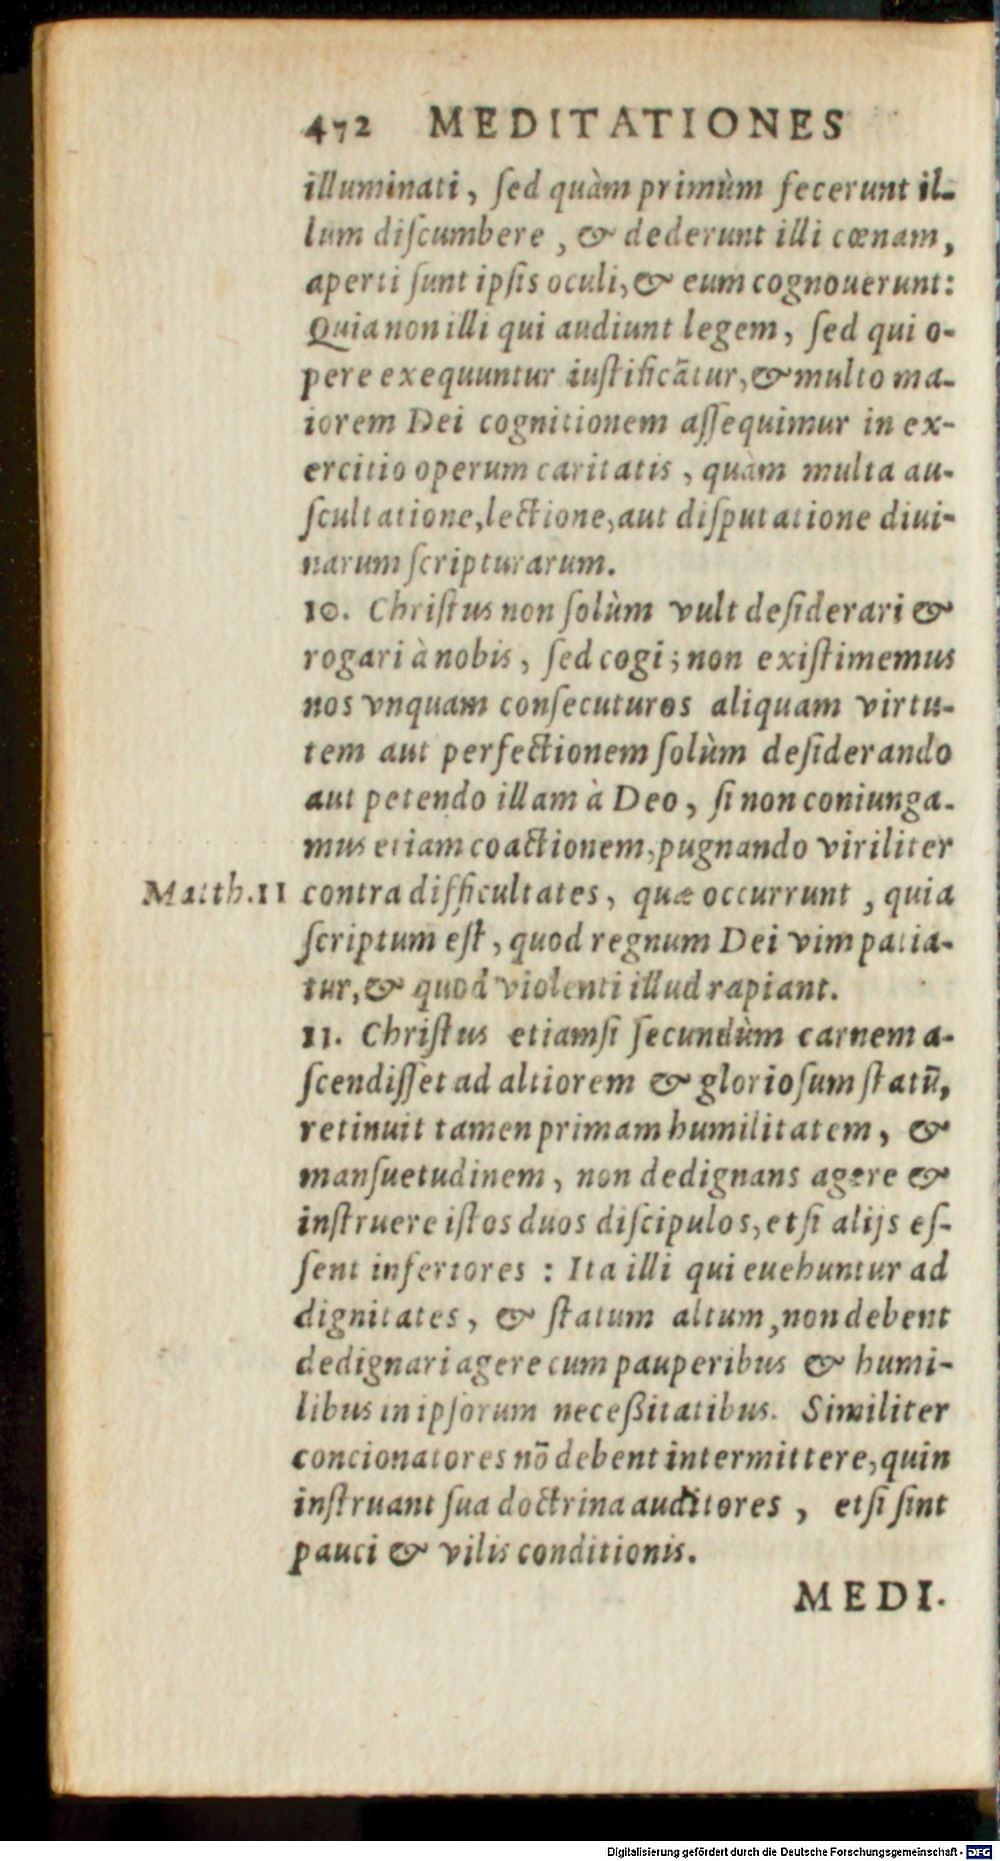 472 MEDITATIONES
illuminati, ſed quàm primùm fecerunt il-
lum diſcumbere, & dederunt illi cœnam,
aperti ſunt ipſis oculi, & eum cognouerunt:
Quia non illi qui audiunt legem, ſed qui o-
pere exequuntur iuſtificãtur, & multo ma-
iorem Dei cognitionem aſſequimur in ex-
ercitio operum caritatis, quàm multa au-
ſcultatione, lectione, aut diſputatione diui-
narum ſcripturarum.
10. Chriſtus non ſolùm vult deſiderari &
rogari à nobis, ſed cogi; non exiſtimemus
nos vnquam conſecuturos aliquam virtu-
tem aut perfectionem ſolùm deſiderando
aut petendo illam à Deo, ſi non coniunga-
mus etiam coactionem, pugnando viriliter
Matth. 11 contra difficultates, quæ occurrunt, quia
ſcriptum eſt, quod regnum Dei vim patia-
tur, & quod violenti illud rapiant.
11. Chriſtus etiamſi ſecundùm carnem a-
ſcendiſſet ad altiorem & glorioſum ſtatũ,
retinuit tamen primam humilitatem, &
manſuetudinem, non dedignans agere &
inſtruere iſtos duos diſcipulos, etſi alijs eſ-
ſent inferiores : Ita illi qui euehuntur ad
dignitates, & ſtatum altum, non debent
dedignari agere cum pauperibus & humi-
libus in ipſorum neceßitatibus. Similiter
concionatores nõ debent intermittere, quin
inſtruant ſua doctrina auditores, etſi ſint
pauci & vilis conditionis.
MEDI-
Digitalisierung gefördert durch die Deutsche Forschungsgemeinschaft - DFG